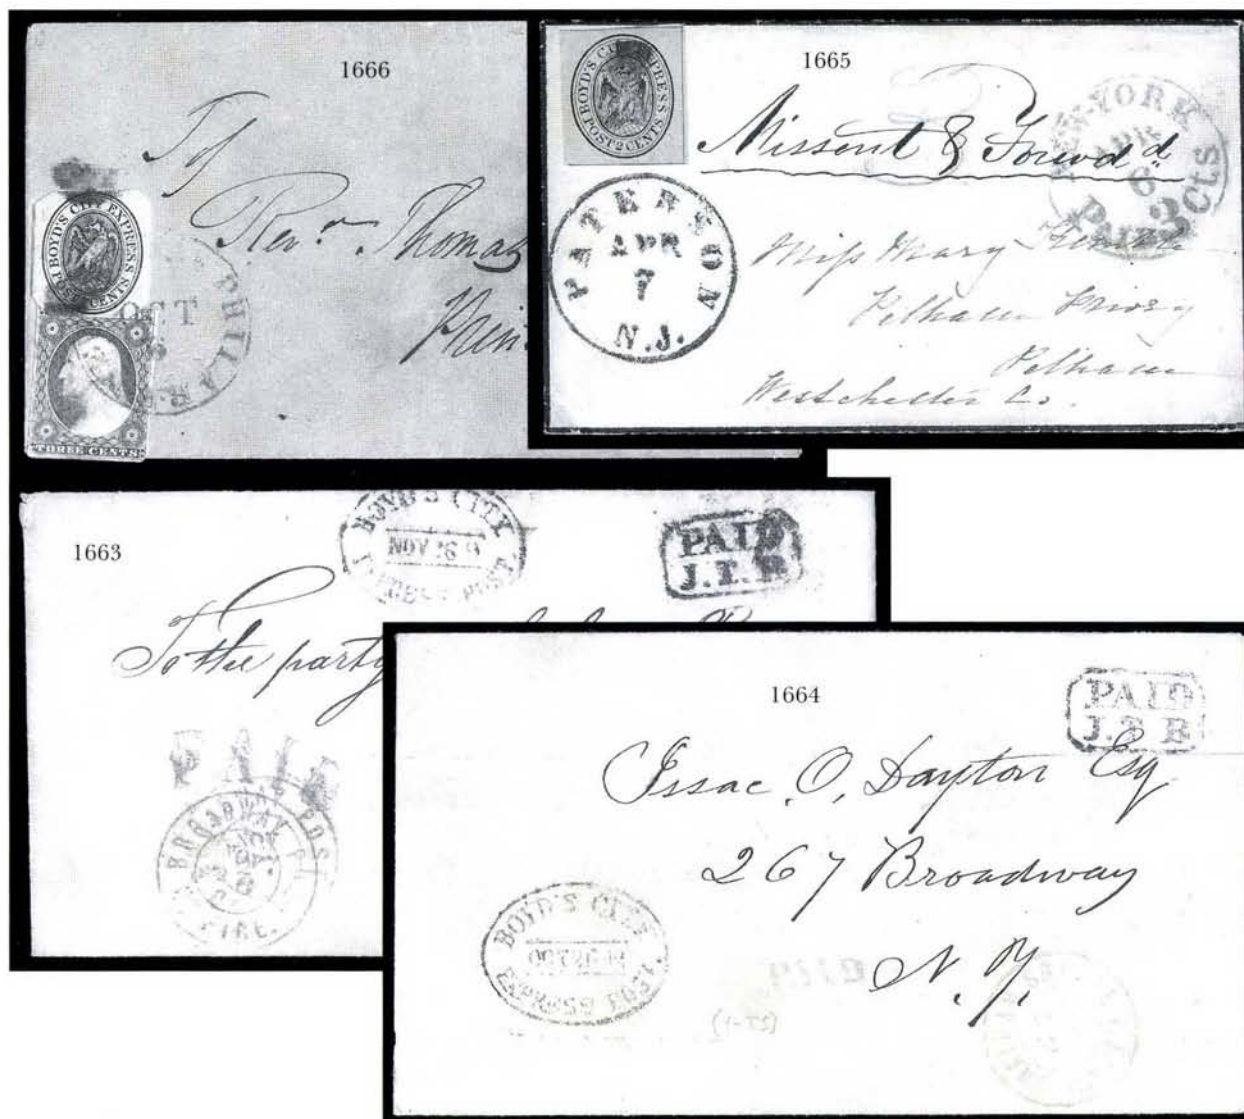 1666
To
Rev. Thomas
Prin
BOYD'S CITY EXPRESS
POST 2 CENTS
OCT
PHILA
THREE CENTS
1665
BOYD'S CITY EXPRESS
POST 2 CENTS
Missent & Forwd d
NEW-YORK
APR
6
PAID
3 cts
PATERSON
APR
7
N.J.
Miss Mary
Pelham Priory
Pelham
Westchester Co.
1663
BOYD'S CITY
NOV 26
EXPRESS POST
PAID
J.T.B
To the party
PAID
BROADWAY POST
1664
PAID
J.T.B
Issac. O, Dayton Esq
267 Broadway
N.Y.
BOYD'S CITY
OCT 26
EXPRESS POST
PAID